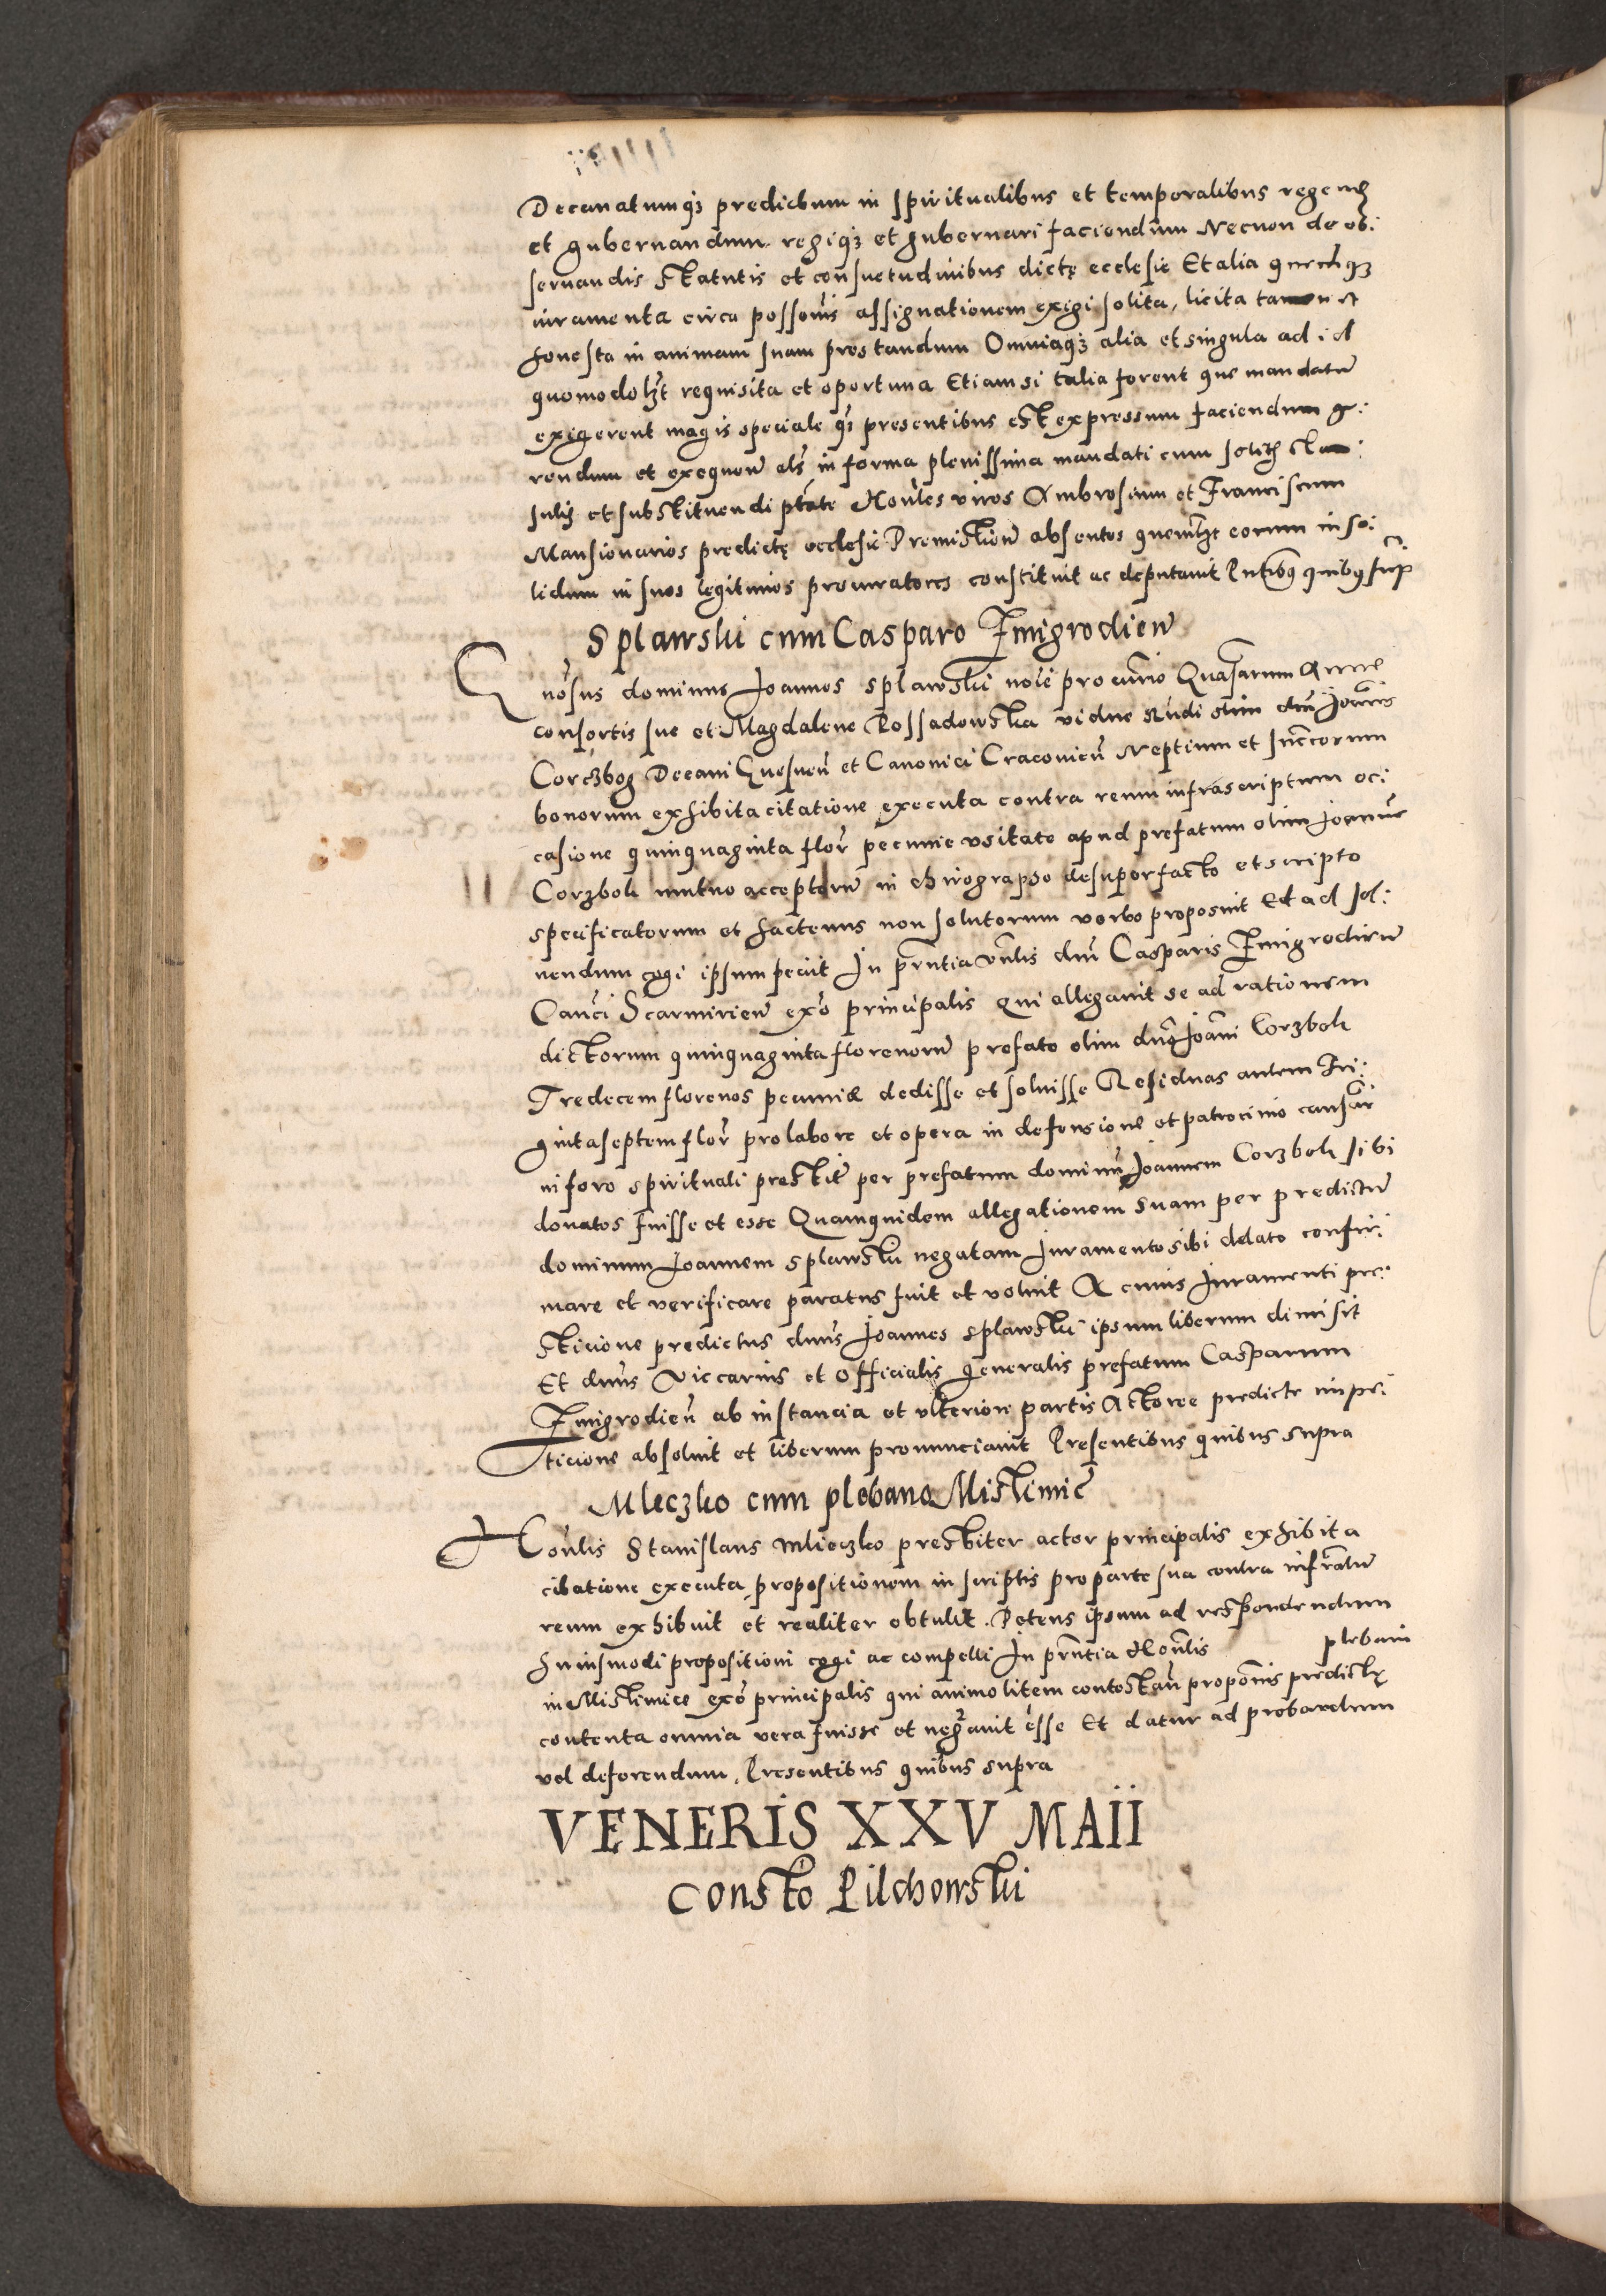 Decanatumqȝ predictum in spiritualibus et temporalibus regend
et gubernandum regiqȝ et gubernari faciendum Necnon de ob:
seruandis statutis et consuetudinibus dictę ecclesie Et alia quecunqȝ
iuramenta circa possōnis assignationem exigi solita, licita tamen et
honesta in animam suam prestandum Omniaqȝ alia et singula ad id
quomodolȝt requisita et oportuna Etiamsi talia forent que mandatū
exigerent magis speciale q̄ presentibus est expressum faciendum ge:
rendum et exequen̄ als̄ in forma plenissima mandati cum
et substituendi ptāte Honl̄es viros Ambrosium et Franciscum
Mansionarios predictę ecclesie Premislien̄ absentes quemlȝt eorum in so:
lidum in suos legitimos procuratores constituit ac deputauit Pn̄tibus quibus sup
Splawski cum Casparo Zmigrodien̄
Gnōsus dominus Joannes Splawski noīe procur̄io Quasarum Anne
consortis sue et Magdalene Rossadowska vidue olim dn̄i Joan̄is
Corczbog Decani Gnesnen̄ et Canonici Cracouien̄ Neptium et
bonorum exhibita citatione executa contra reum infrascriptum oc:
casione quinquaginta flor̄ pecunie vsitate apud prefatum olim Joannē
Corzbok mutuo acceptorū in chirographo desuper facto et scripto
specificatorum et hactenus non solutorum verbo proposuit Et ad sol:
uendum cogi ipsum peciit In pn̄tia vn̄lis dn̄i Casparis Zmigrodien̄
Can̄ci Scarmirien̄ exō principalis Qui allegauit se ad rationem
dictorum quinquaginta florenorū prefato olim dn̄o Joan̄i Corzbok
Tredecem florenos pecuniæ dedisse et soluisse Residuas autem Tri:
ginta septem flor̄ pro labore et opera in defensione et patrocinio causar̄
in foro spirituali prestitē per prefatum dominū Joannem Corzbok sibi
donatos fuisse et esse Quamquidem allegationem suam per predictū
dominum Joannem Splawski negatam Juramento sibi delato confir:
mare et verificare paratus fuit et voluit A cuius Juramenti pre:
sticione predictus dn̄us Joannes Splawski ipsum liberum dimisit
Et dn̄us Viccarius et Officialis generalis prefatum Casparum
Zmigrodien̄ ab instancia et vlteriori partis Actoree predicte impe:
ticione absoluit et liberum pronunciauit Presentibus quibus supra
Mleczko cum plebano Mistimic̄
Honl̄is Stanislaus Mlieczko presbiter actor principalis exhibita
citatione executa propositionem in scriptis pro parte sua contra infrātū
reum exhibuit et realiter obtulit. Petens ipsum ad respondendum
huiusmodi propositioni cogi ac compelli In pn̄tia Honl̄is plebani
in Mistimice exō principalis qui animo litem contestan̄ propon̄is predictę
contenta omnia vera fuisse et negauit esse Et datur ad probandum
vel deferendum. Presentibus quibus supra
VENERIS XXV MAII
Constō Pilchowski